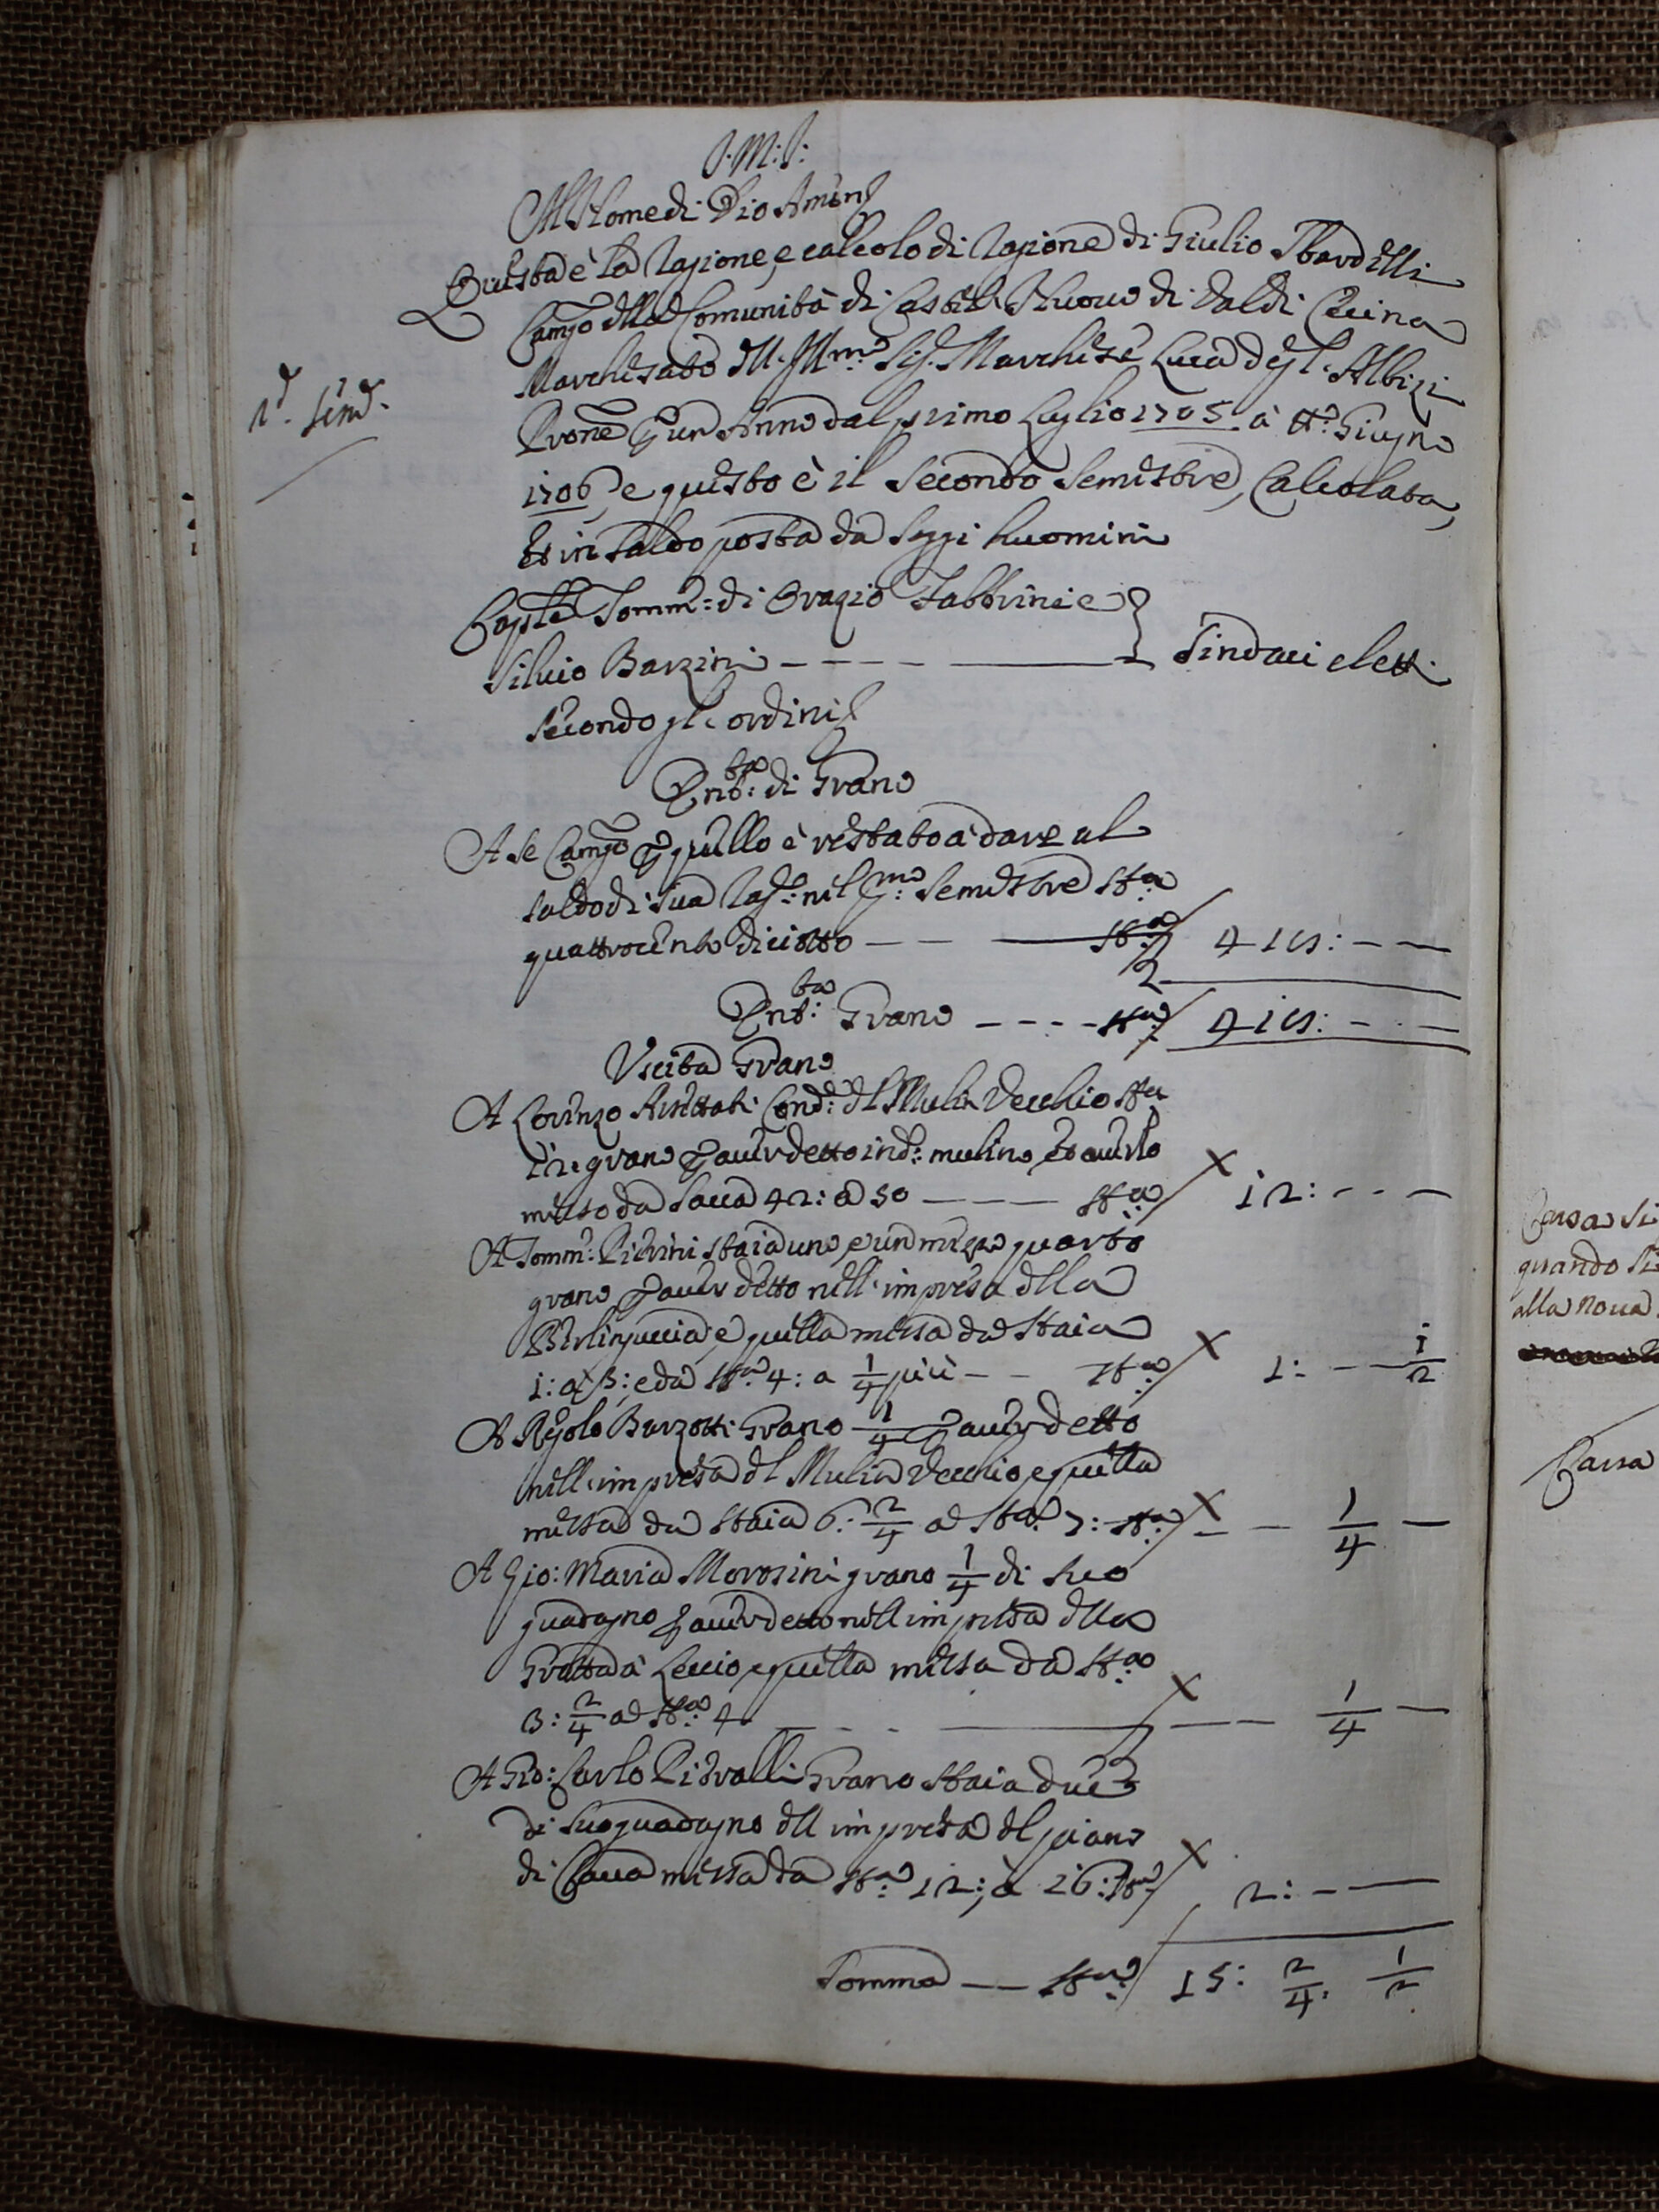 J: M: J:
Al Nome di Dio Amen
Questa è la ragione, e calcolo di ragione di Giulio Sbardelli
Camgo della Comunità di Castel Nuovo di Val di Cecina
Marchesato dll Illmo Sig. Marchese Luca degl. Albizi
Prone p un Anno dal primo Luglio 1705 à tt.o Giugno
1706, e questo è il Secondo Semestre, Calcolata,
et in saldo posta da Saggi huomini
2.o Sem.e
Tomm.o: di Orazio Fabbrini e
Silvio Barzini - - - - Sindaci eletti
secondo gli ordini
Ent.ta: di Grano
A se Camgo p quello è restato à dare al
saldo di sua rag.e: nel p.mo: Semestre Sta
quattrocento diciotto — — Sta: 418: — —
Ent.ta: Grano - - - - Sta: 418: - - -
Uscita Grano
A Lorenzo Cond.e: dl Mulin Vecchio Sta
12: grano p aver detto in d.o: mulino et averlo
messo da sacca 42: a 50 — — — Sta: 12: - - -
A Tomm.o: Pierini staia uno, e un mezzo quarto
grano p aver detto nell'impresa della
Berlinguccia, e quella messa da Staia
1: a 3: e da Sta: 4: a 1/4 più - - Sta: 1: - — 1/2
A Regolo Barzotti Grano 1/4 p aver detto
nell'impresa dl Mulin Vecchio, e quella
messa da Staia 6: 2/4 a Sta: 7: Sta: — — 1/4 —
A Gio: Maria Morosini grano 1/4 di suo
guadagno p aver detto nell impresa dlla
à Leccio, e quella messa da Sta
3: 2/4 a Sta: 4. — - - — — 1/4 —
A Gio: Carlo Grano Staia due
di suo guadagno dll impresa dl piano
di Cava messa da Sta: 12: à 16: Sta: 2: - —
Somma — Sta: 15: 2/4. 1/2
quando
alla nova